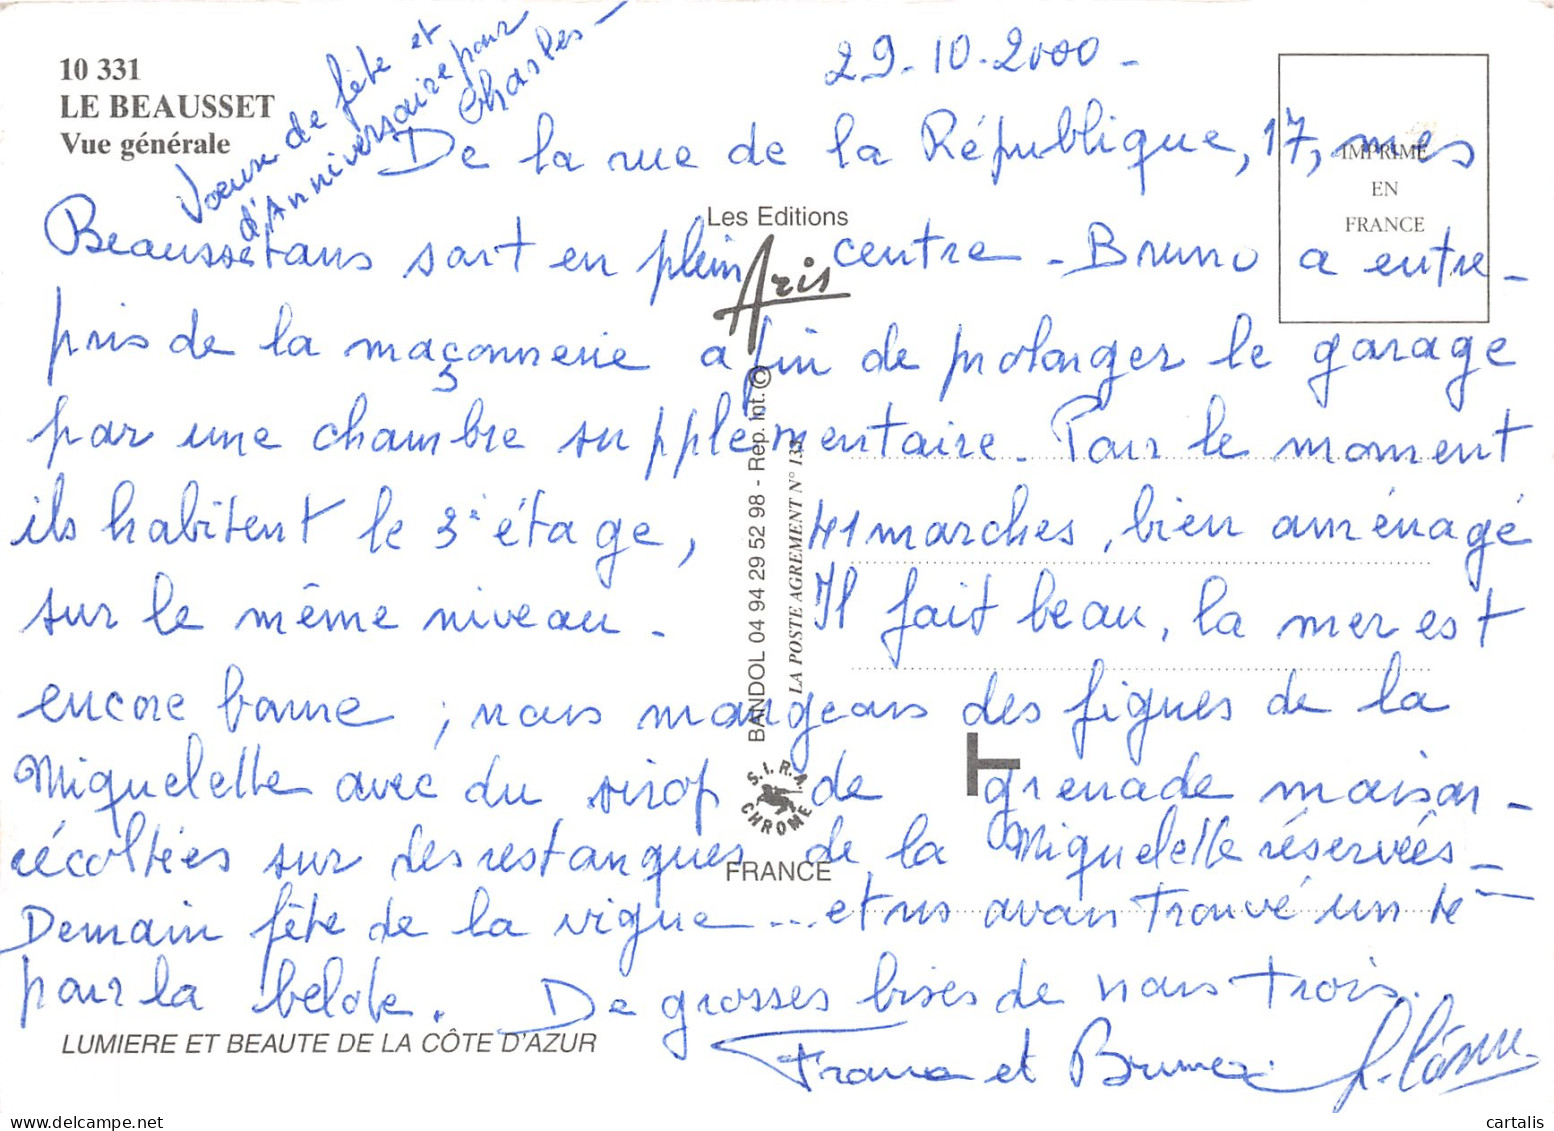 10 331
LE BEAUSSET
Vue générale
Voeux de fête et
d'Anniversaire pour
Charles -
29-10-2000 -
De la rue de la République, 17, mes
IMPRIME
EN
FRANCE
Les Editions
Aris
Beaussétans sont en plein centre - Bruno a entre-
pris de la maçonnerie afin de prolonger le garage
par une chambre supplémentaire - Pour le moment
ils habitent le 3e étage, 41 marches, bien aménagé
sur le même niveau - Il fait beau, la mer est
encore bonne ; nous mangeons des figues de la
Miquelette avec du sirop de grenade maison -
récoltées sur des restanques de la Miquelette réservées -
Demain fête de la vigne ... et ns avons trouvé un 4e
pour la belote. De grosses bises de nous trois.
et Bruno
BANDOL 04 94 29 52 98 - Rep. Int. ©
LA POSTE AGREMENT N° 133
S.I.R.A.
CHROME
FRANCE
LUMIERE ET BEAUTE DE LA CÔTE D'AZUR
delcampe.net
cartalis